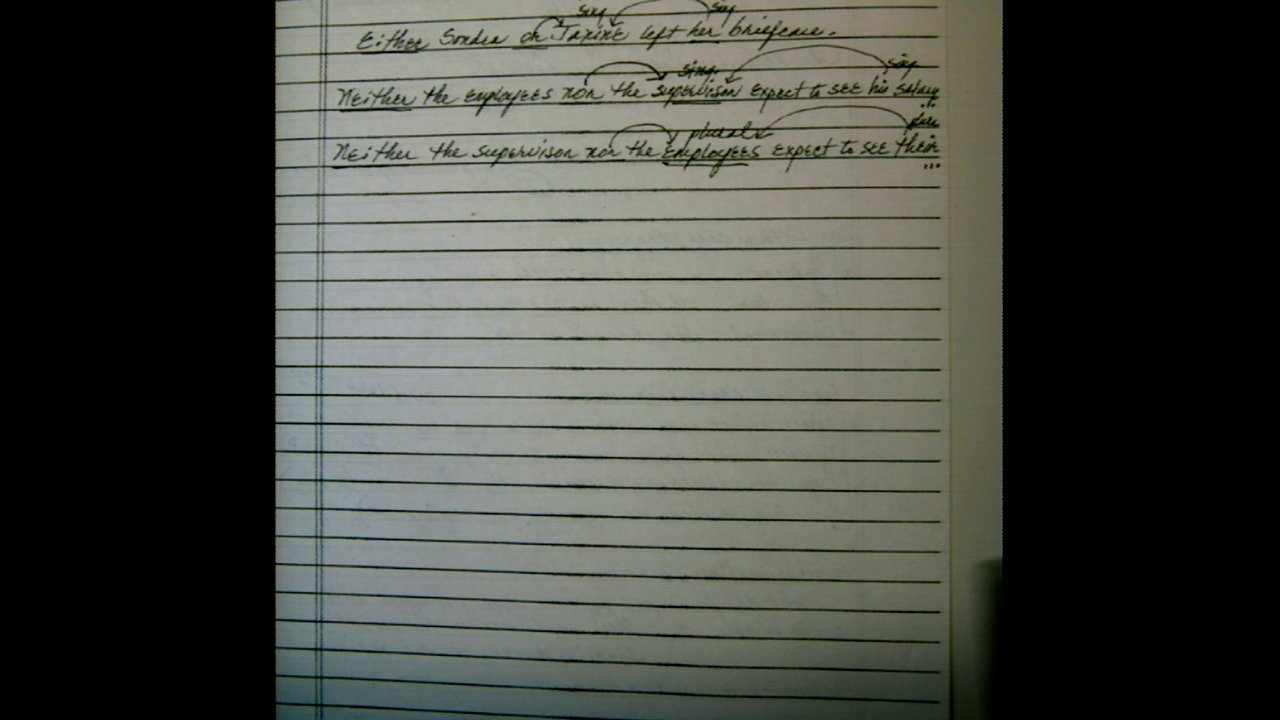 sing sing
Either Sondra or Janine left her briefcase.
sing. sing.
Neither the employees nor the supervisor expect to see his salary
...
plural plu
Neither the supervisor nor the employees expect to see their
...